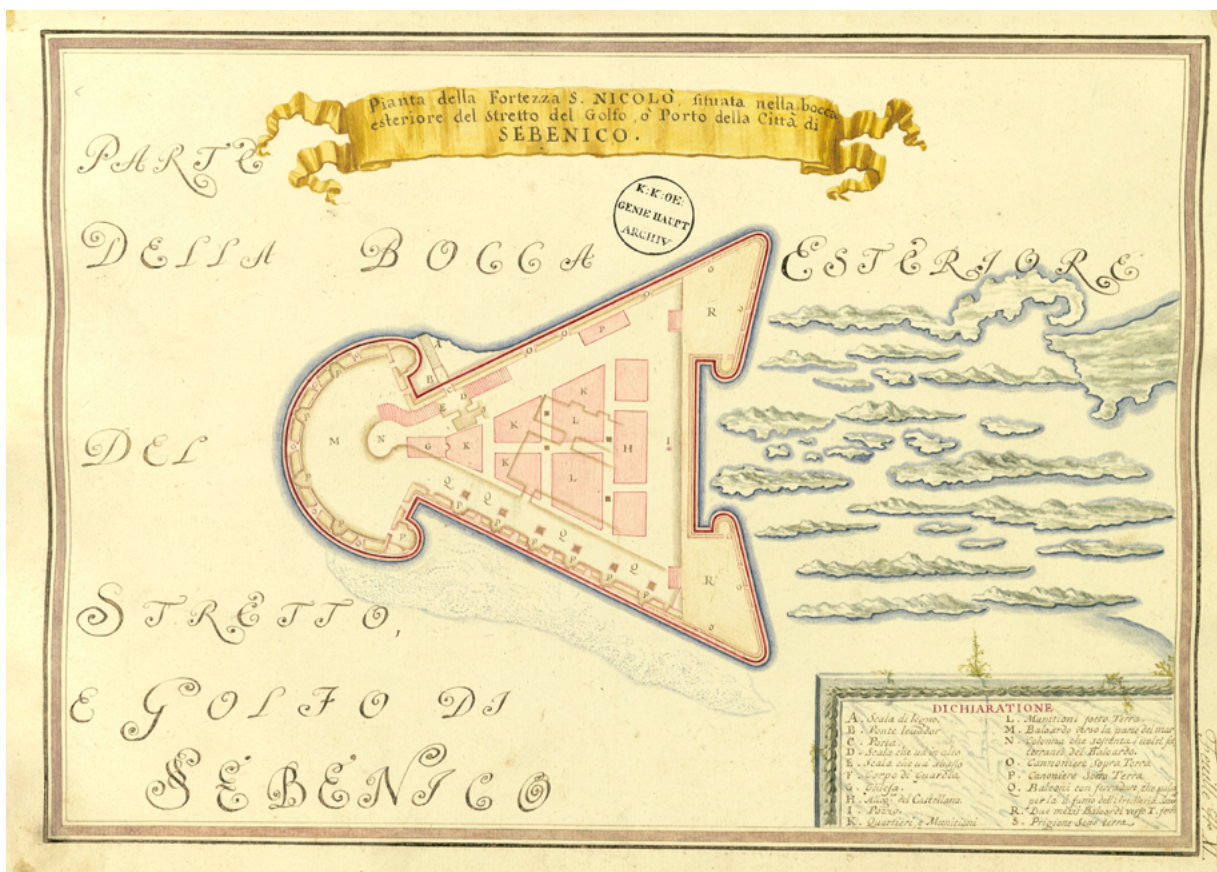 Pianta della Fortezza S. NICOLÒ, situata nella bocca
esteriore del Stretto del Golfo, ò Porto della Città di
SEBENICO.
K:K:OE:
GENIE HAUPT
ARCHIV
PARTE
DELLA BOCCA ESTERIORE
DEL
STRETTO,
E GOLFO DI
SEBENICO
A
B
C
D
E
G
H
I
K
K
K
K
L
L
M
N
O
O
O
P
P
Q
Q
Q
Q
R
R
S
DICHIARATIONE
A. Scala di legno.
B. Ponte levador
C. Porta.
D. Scala che và in alto
E. Scala che và à basso
F. Corpo di Guardia
G. Chiesa.
H. del Castellano.
I. Pozzo.
K. Quartieri, e Munitioni
L. Munitioni sotto Terra.
M. Baloardo verso la parte del mar
N. Colonna che sostenta i volti
terranei del Baloardo.
O. Cannoniere Sopra Terra
P. Canoniere Sotto Terra
Q. Balconi con ferradure, che
per il fumo dell'
R. Due mezzi Baloardi verso T.
S. Prigione Soto terra.